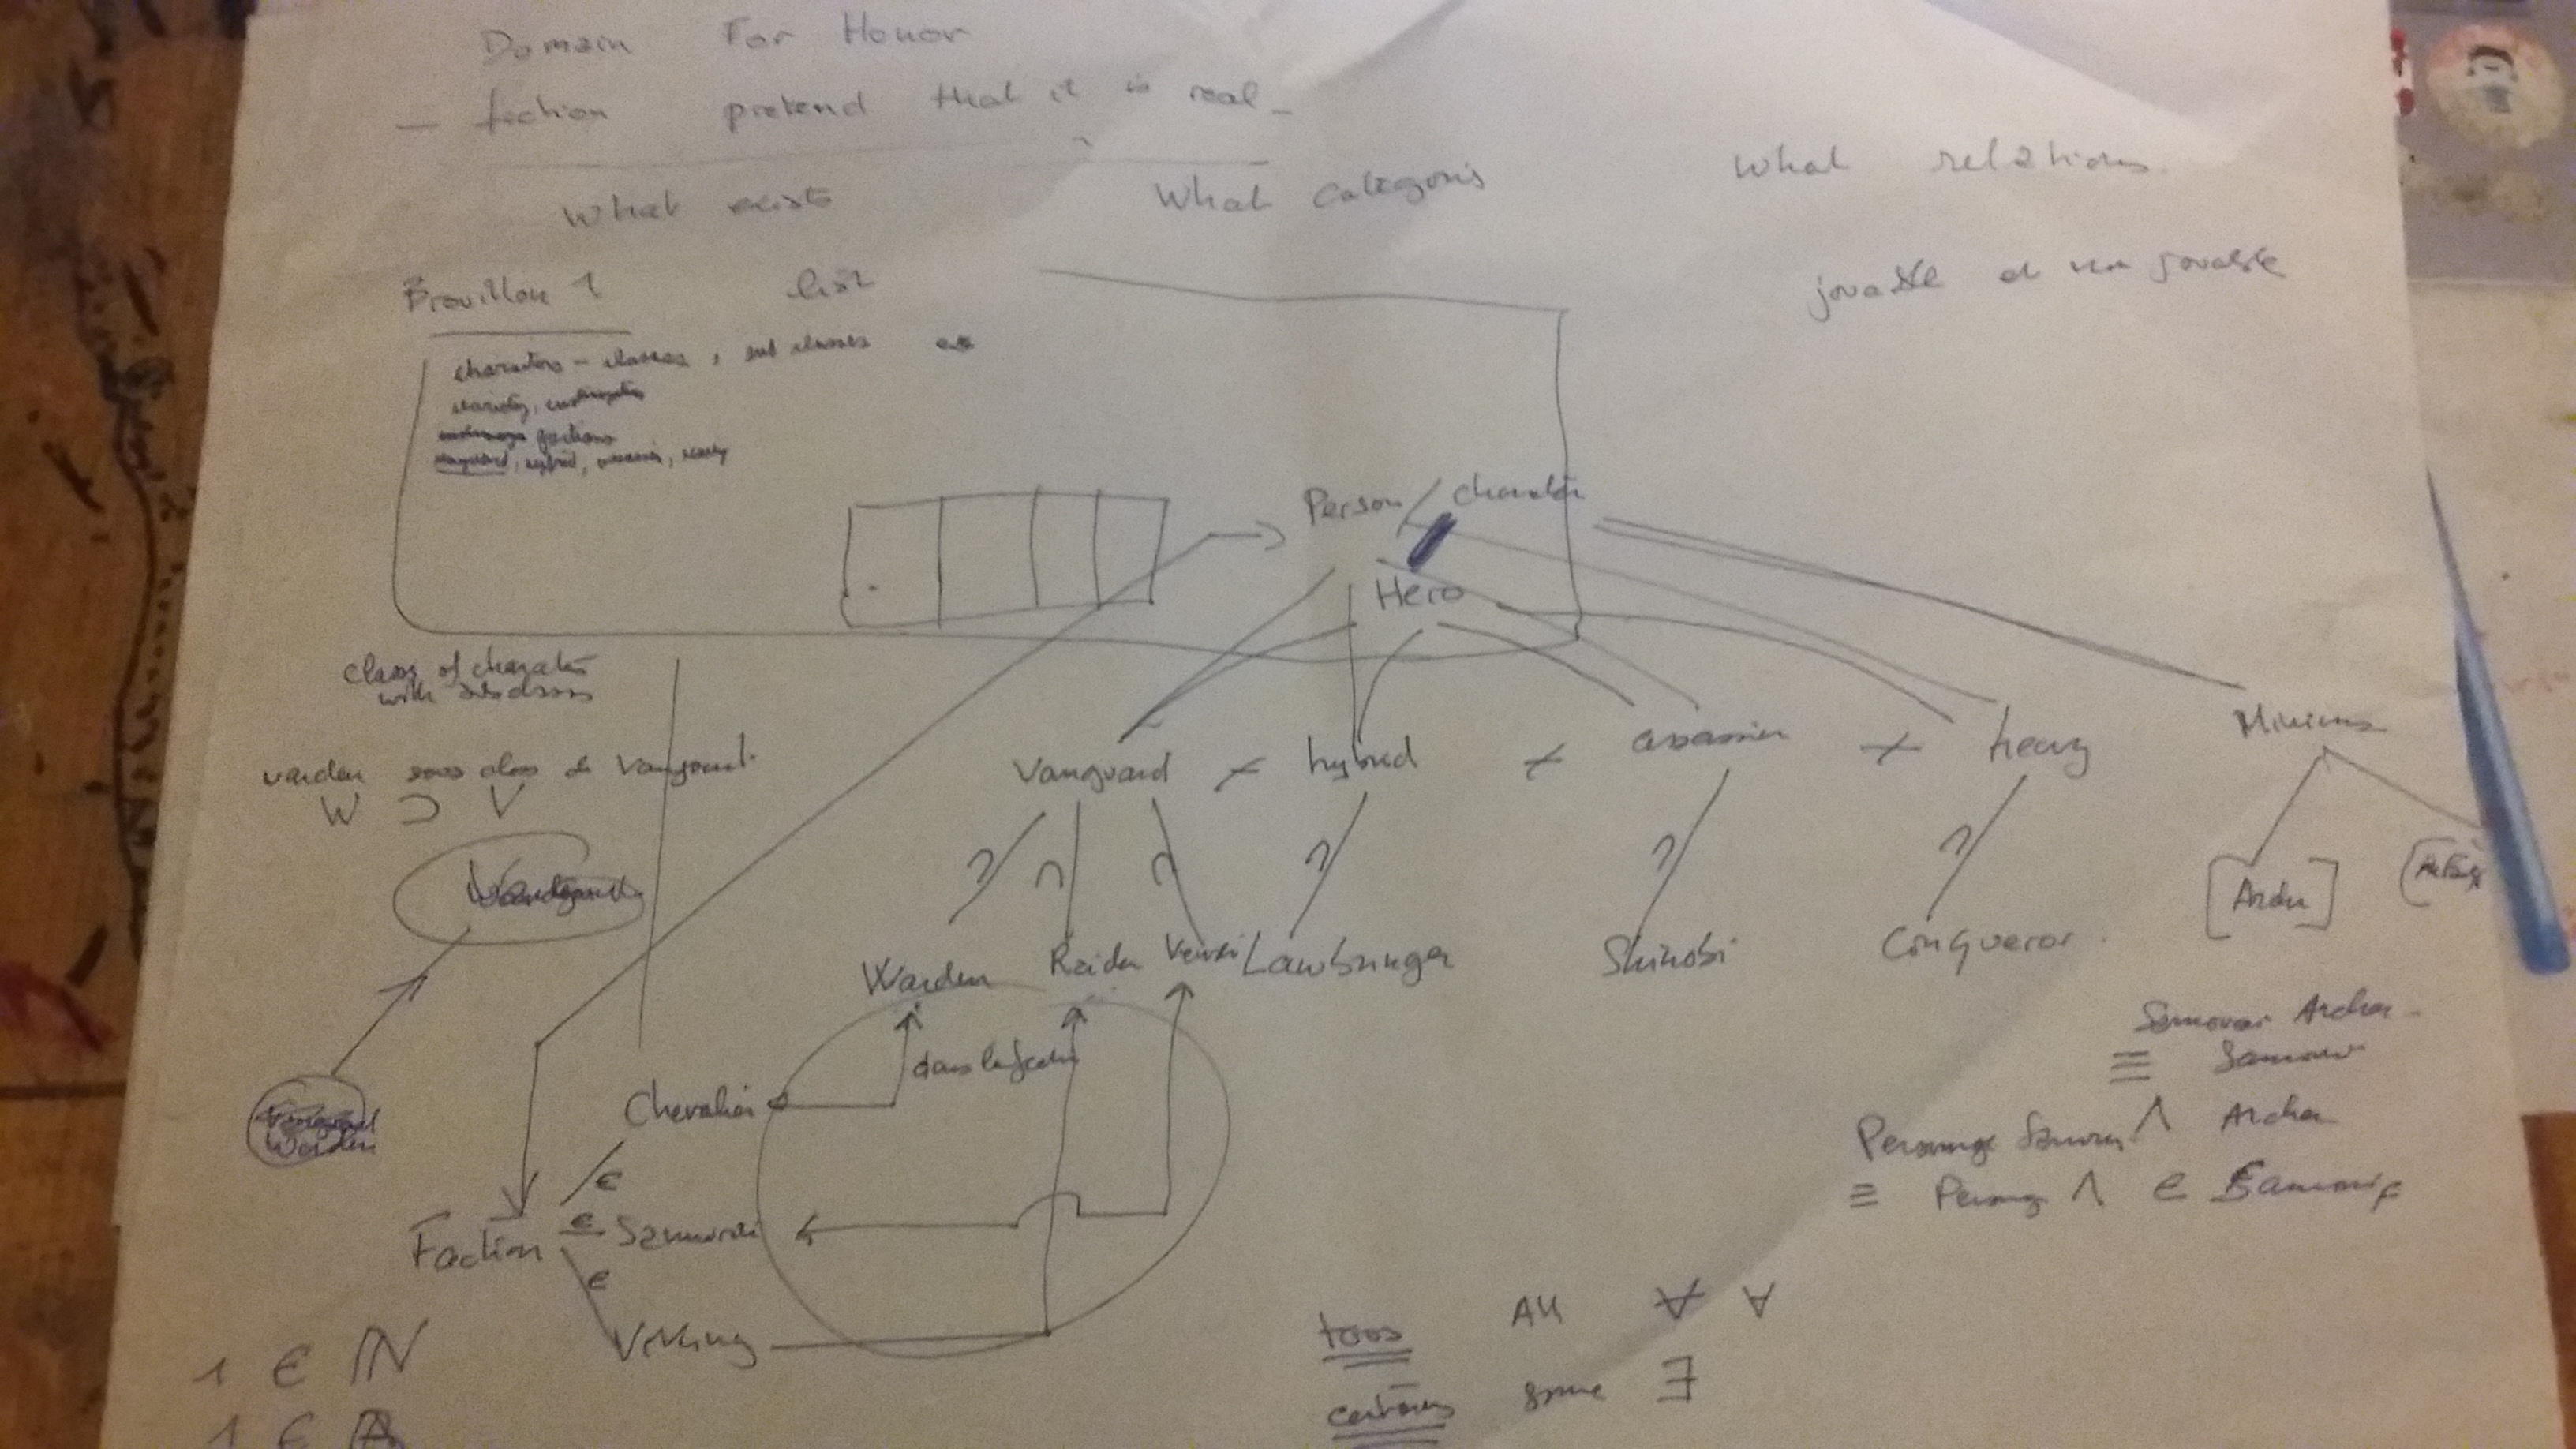 Domain For Honor
– fiction pretend that it is real –
What exists What categoris What relations
Brouillon 1 list jouable et non jouable
characters – classes, sub classes
factions
hybrid,
Person / character
Hero
class of character
with subclasses
warden sous class de Vanguard
W ⊃ V
Vanguard ≠ hybrid ≠ assassin ≠ heavy
Minions
[Archer]
Warden Raider Lawbringer Shinobi Conqueror
dans la faction
Chevalier
Faction ∈ Samurai
∈
∈
Vikking
Samourai Archer
≡ Samourai
Personnage Samourai ∧ Archer
≡ Personnage ∧ ∈ Samourai
tous All ∀ ∀
certains some ∃
1 ∈ ℕ
1 ∈